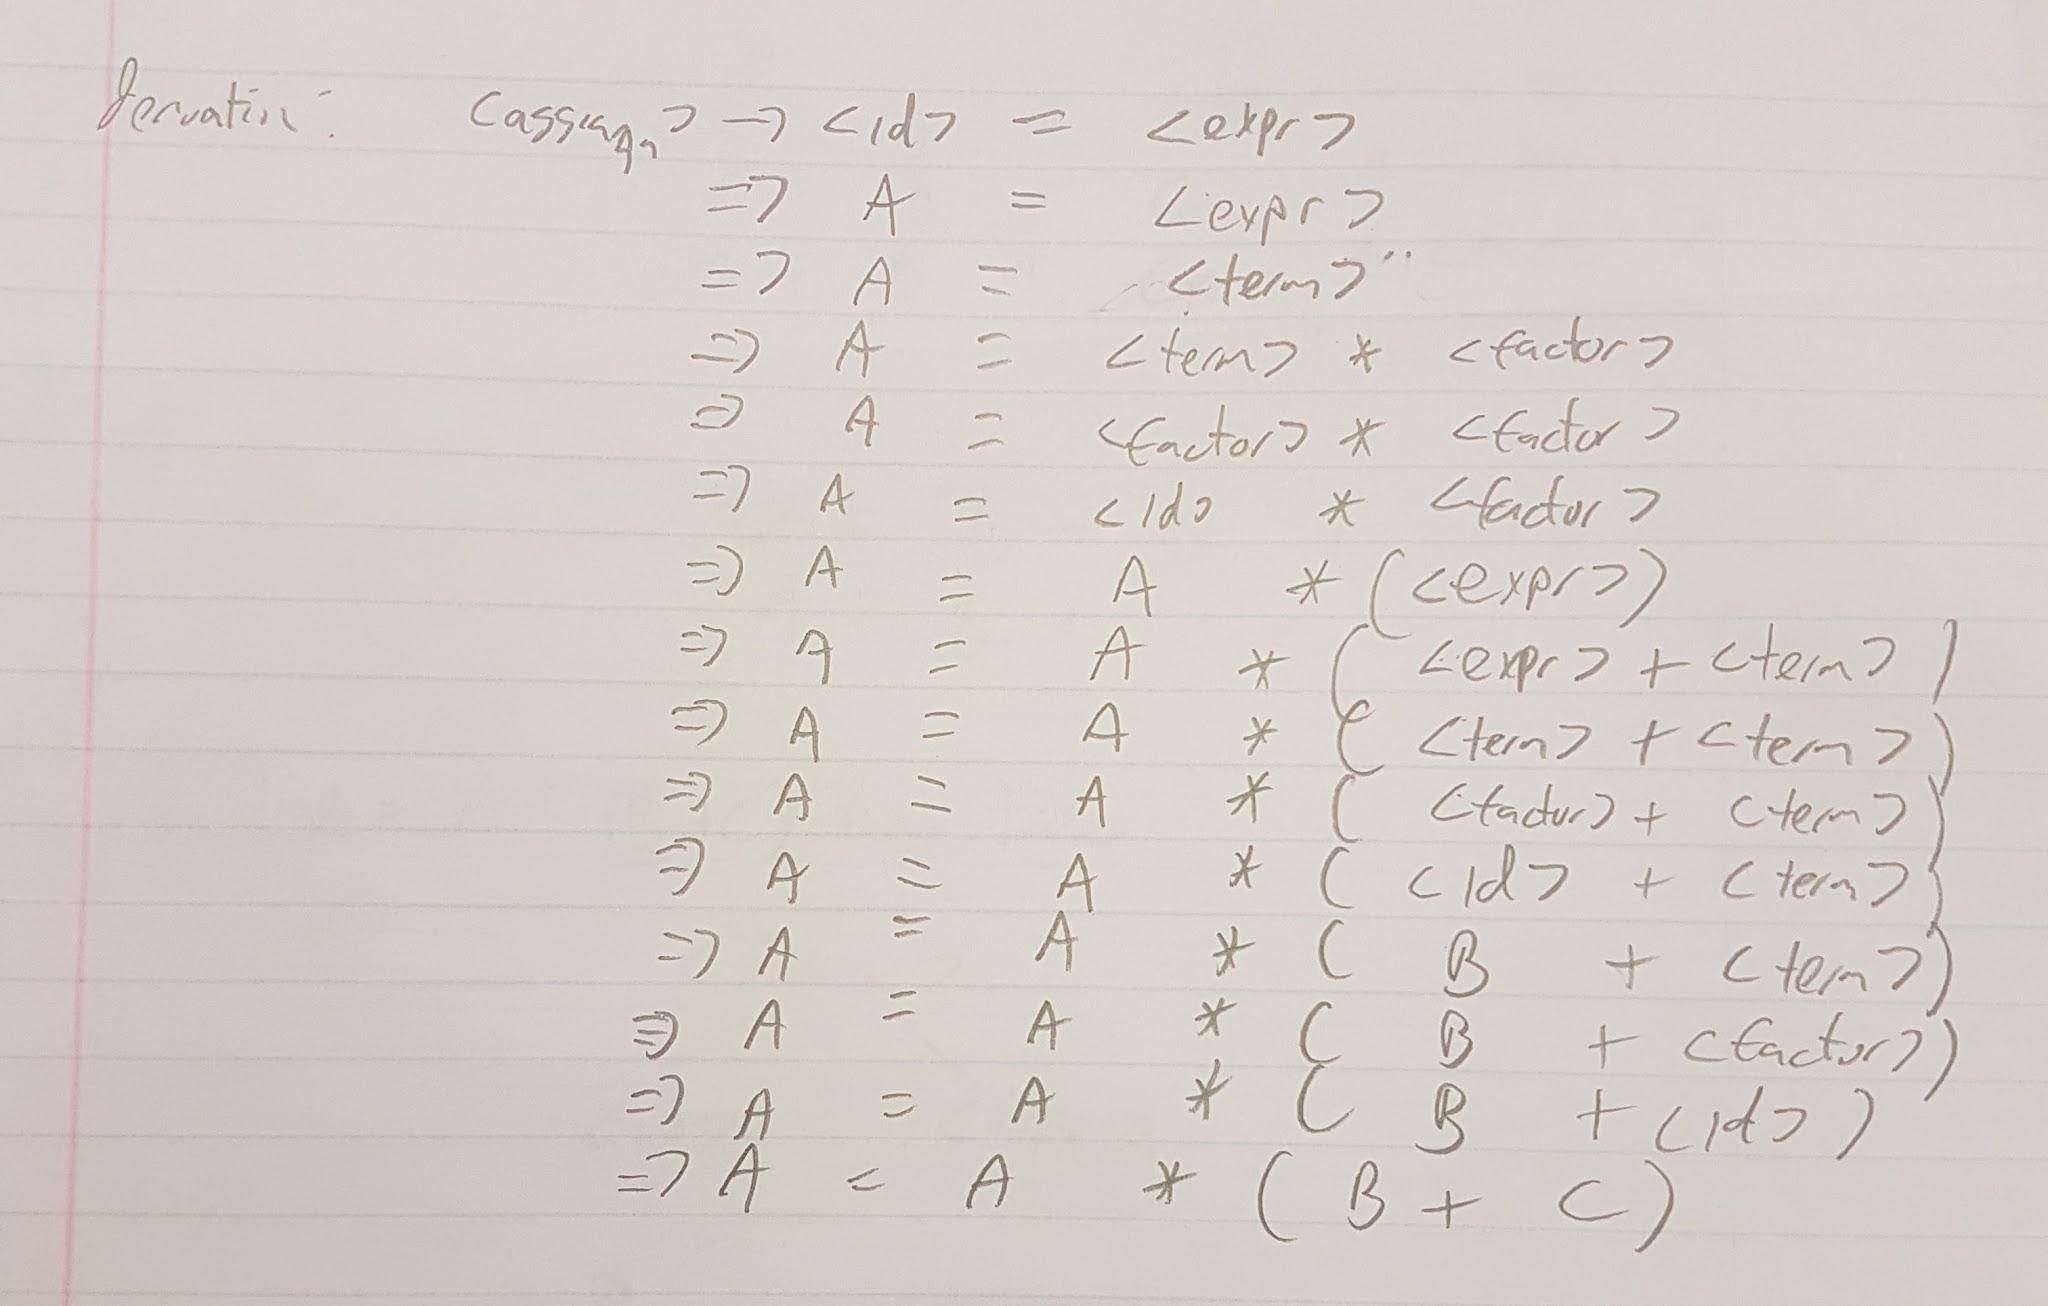 Derivation: <assign> → <id> = <expr>
=> A = <expr>
=> A = <term>
=> A = <term> * <factor>
=> A = <factor> * <factor>
=> A = <id> * <factor>
=> A = A * (<expr>)
=> A = A * ( <expr> + <term> )
=> A = A * ( <term> + <term> )
=> A = A * ( <factor> + <term> )
=> A = A * ( <id> + <term> )
=> A = A * ( B + <term> )
=> A = A * ( B + <factor> )
=> A = A * ( B + <id> )
=> A = A * ( B + C )